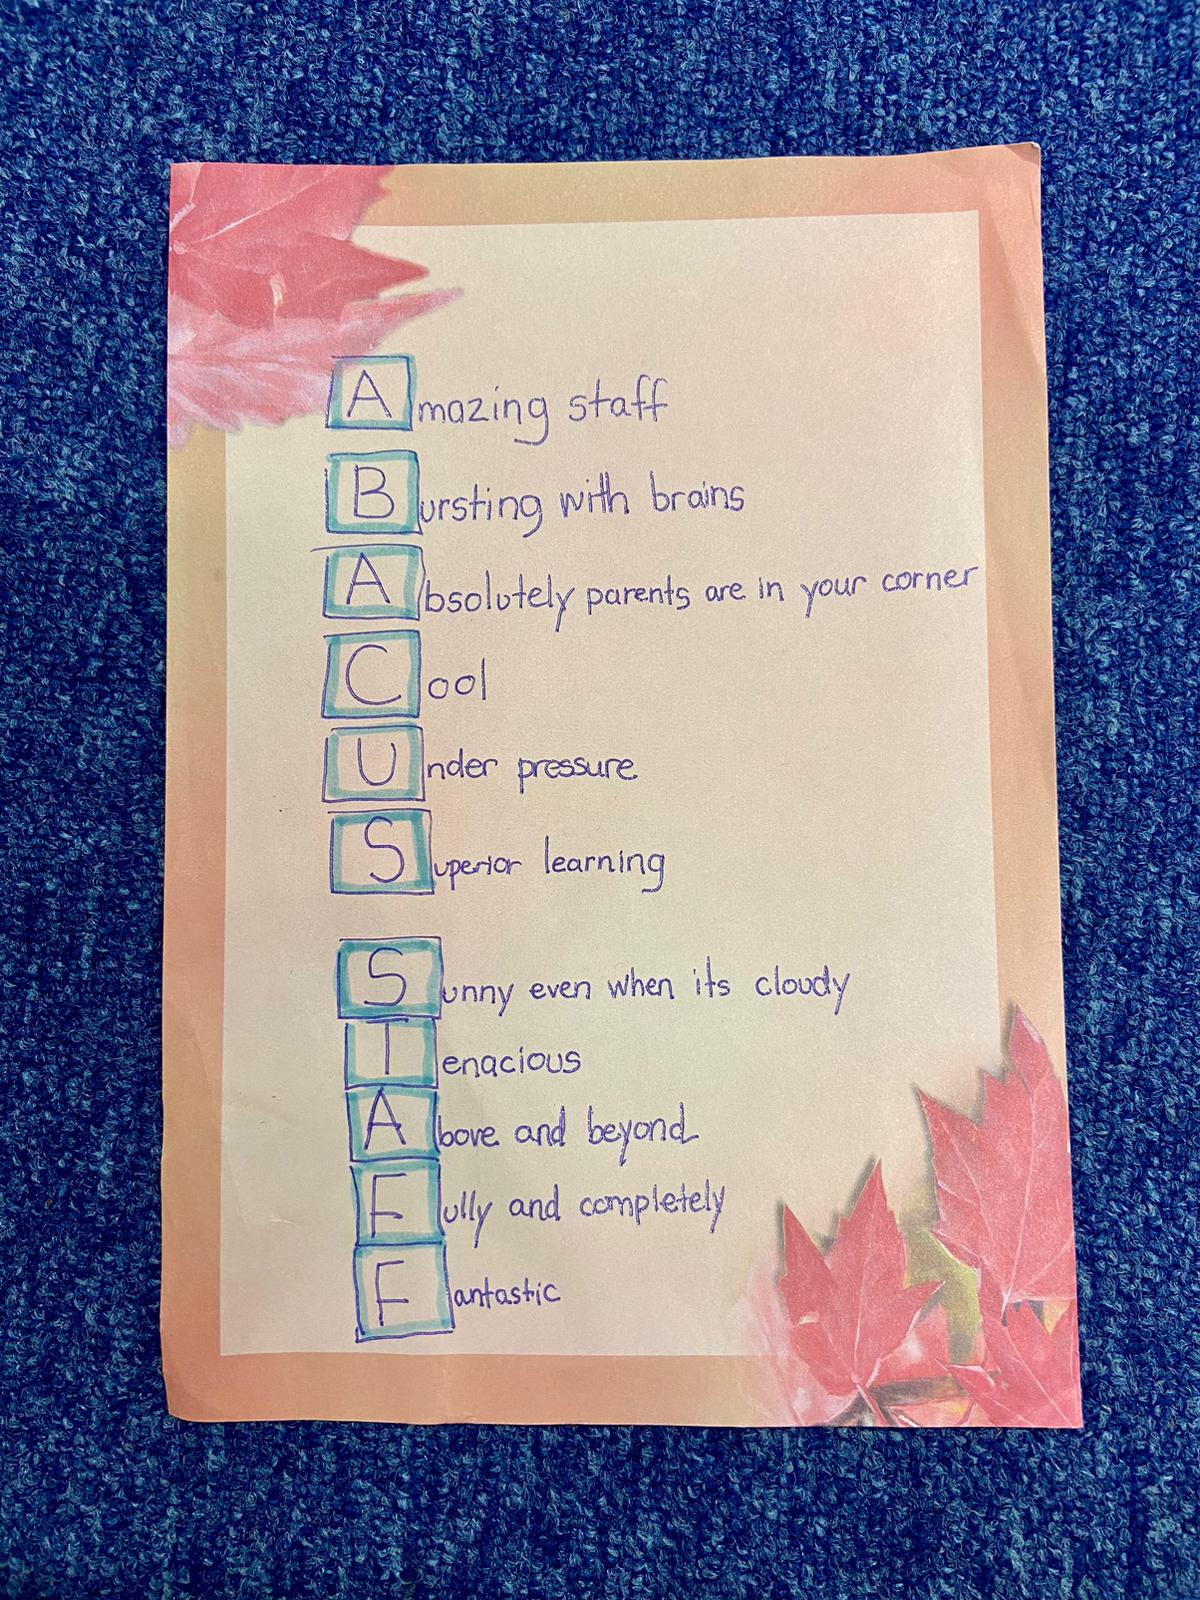 Amazing staff
Bursting with brains
Absolutely parents are in your corner
Cool
Under pressure
Superior learning
Sunny even when its cloudy
Tenacious
Above and beyond
Fully and completely
Fantastic